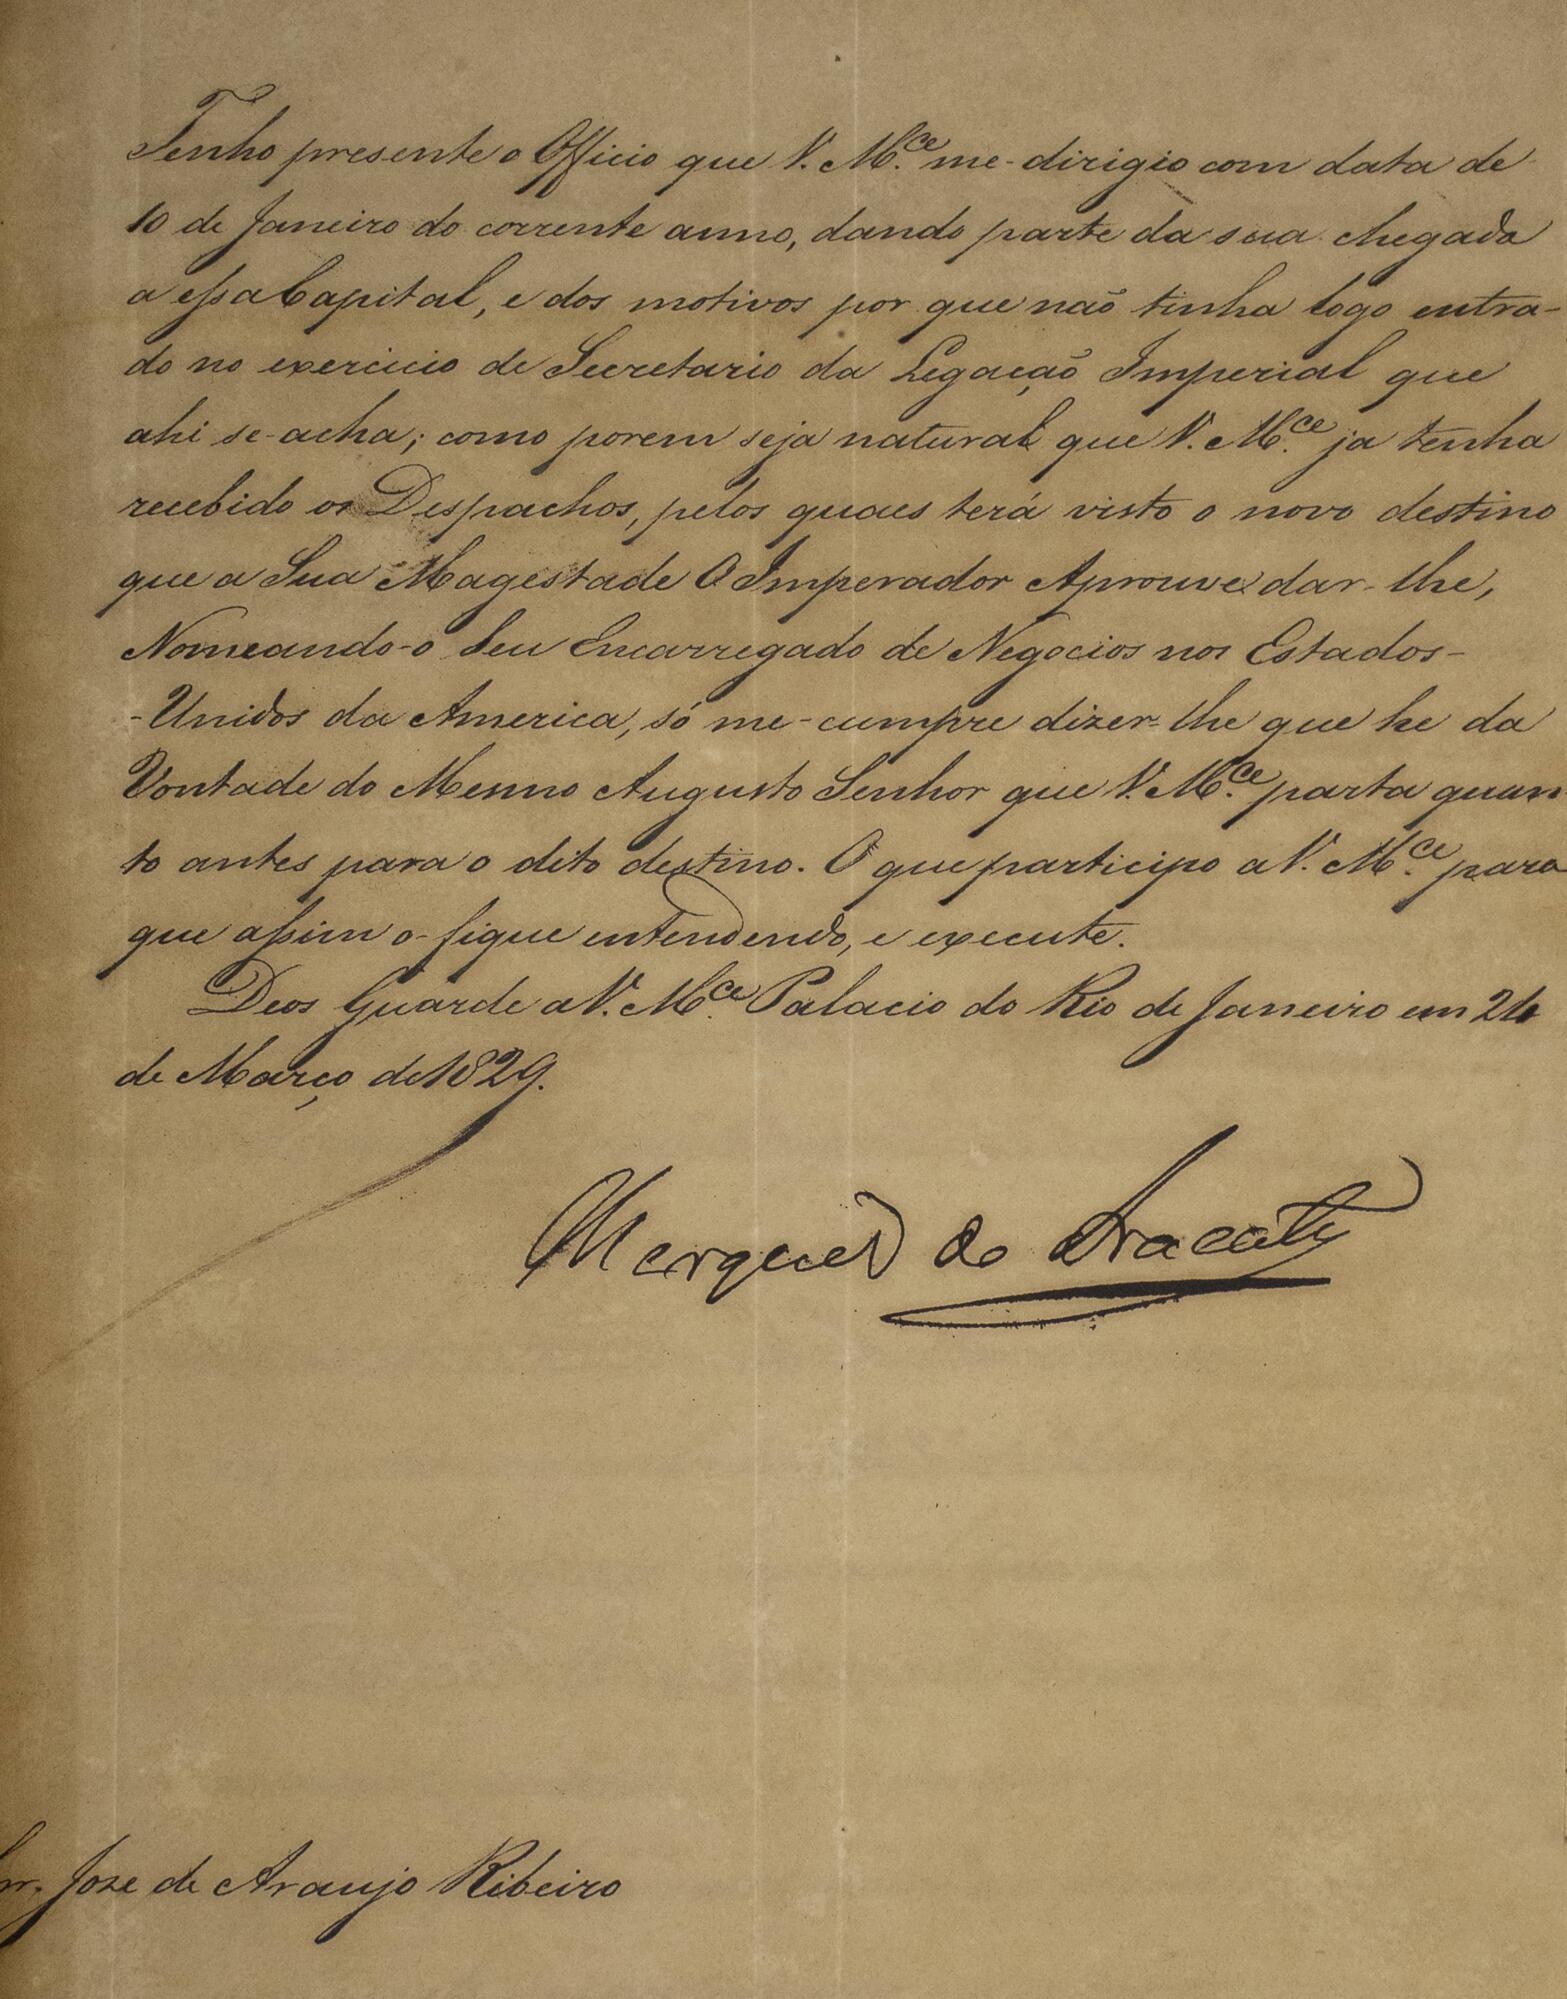 Tenho presente o Officio que V. M.ce me-dirigio com data de
10 de Janeiro do corrente anno, dando parte da sua chegada
a essa Capital, e dos motivos por que não tinha logo entra-
do no exercicio de Secretario da Legação Imperial que
ahi se-acha; como porem seja natural que V. M.ce ja tenha
recebido os Despachos, pelos quaes terá visto o novo destino
que a Sua Magestade O Imperador Aprouve dar-lhe,
Nomeando-o Seu Encarregado de Negocios nos Estados-
-Unidos da America, só me-cumpre dizer-lhe que he da
Vontade do Mesmo Augusto Senhor que V. M.ce parta quan
to antes para o dito destino. O que participo a V. M.ce para
que assim o-fique entendendo, e execute.
Deos Guarde a V. M.ce Palacio do Rio de Janeiro em
de Março de 1829.
Marquez do Aracaty
Snr. Joze de Araujo Ribeiro